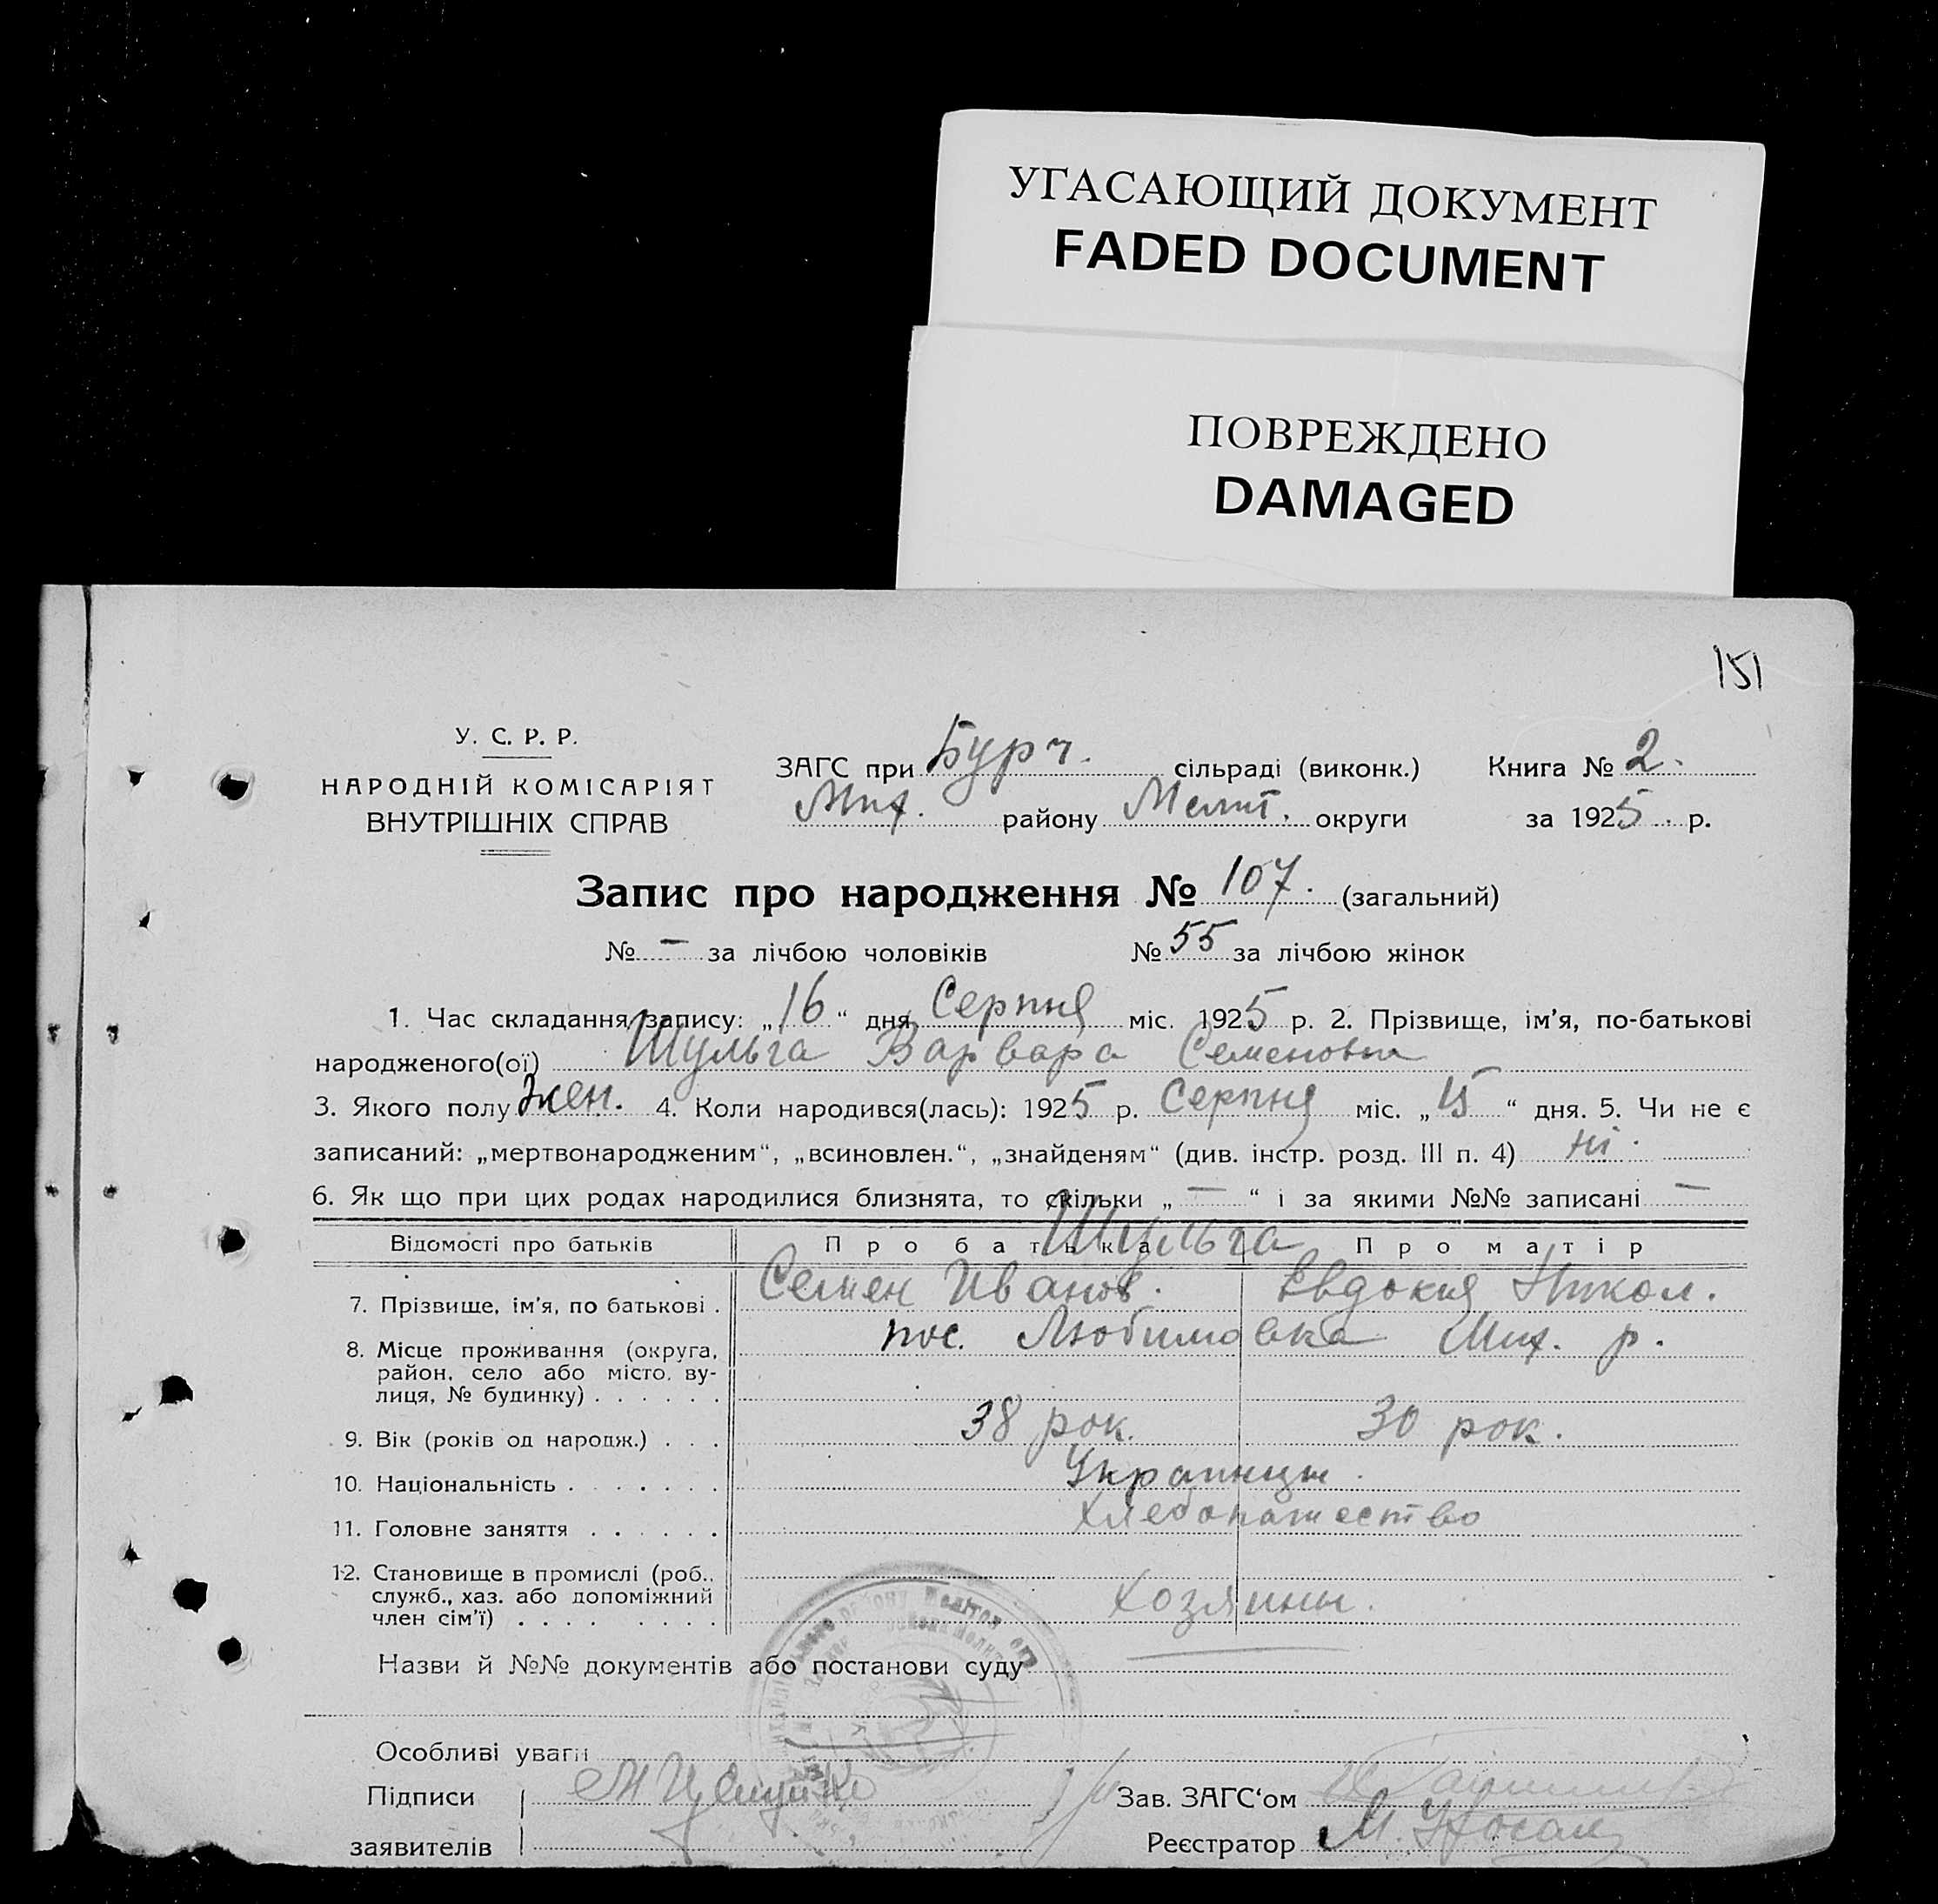 УГАСАЮЩИЙ ДОКУМЕНТ
FADED DOCUMENT
ПОВРЕЖДЕНО
DAMAGED
151
У. С. Р. Р.
НАРОДНІЙ КОМІСАРІЯТ
ВНУТРІШНІХ СПРАВ
ЗАГС при Бурч. сільраді (виконк.) Книга № 2.
Мих. району Мелит. округи за 1925 р.
Запис про народження № 107. (загальний)
№ — за лічбою чоловіків № 55 за лічбою жінок
1. Час складання запису: „16“ дня Серпня міс. 1925 р. 2. Прізвище, ім’я, по-батькові
народженого(ої) Шульга Варвара Семеновна
3. Якого полу жен. 4. Коли народився(лась): 1925 р. Серпня міс. „15“ дня. 5. Чи не є
записаний: „мертвонародженим“, „всиновлен.“, „знайденям“ (див. інстр. розд. III п. 4) ні.
6. Як що при цих родах народилися близнята, то скільки „—“ і за якими №№ записані —
Відомості про батьків Про батька Про матір
Шульга
7. Прізвище, ім’я, по батькові . Семен Иванов. Евдокия Никол.
8. Місце проживання (округа, пос. Любимовка Мих. р.
район, село або місто, ву-
лиця, № будинку) . . . . . .
9. Вік (років од народж.) . . . 38 рок. 30 рок.
10. Національність . . . . . . . Украинцы.
11. Головне заняття . . . . . . Хлебопашество
12. Становище в промислі (роб.,
служб., хаз. або допоміжний Хозяины.
член сім’ї) . . . . . . . .
Назви й №№ документів або постанови суду
Особливі уваги
Підписи Зав. ЗАГС‘ом
заявителів Реєстратор М.